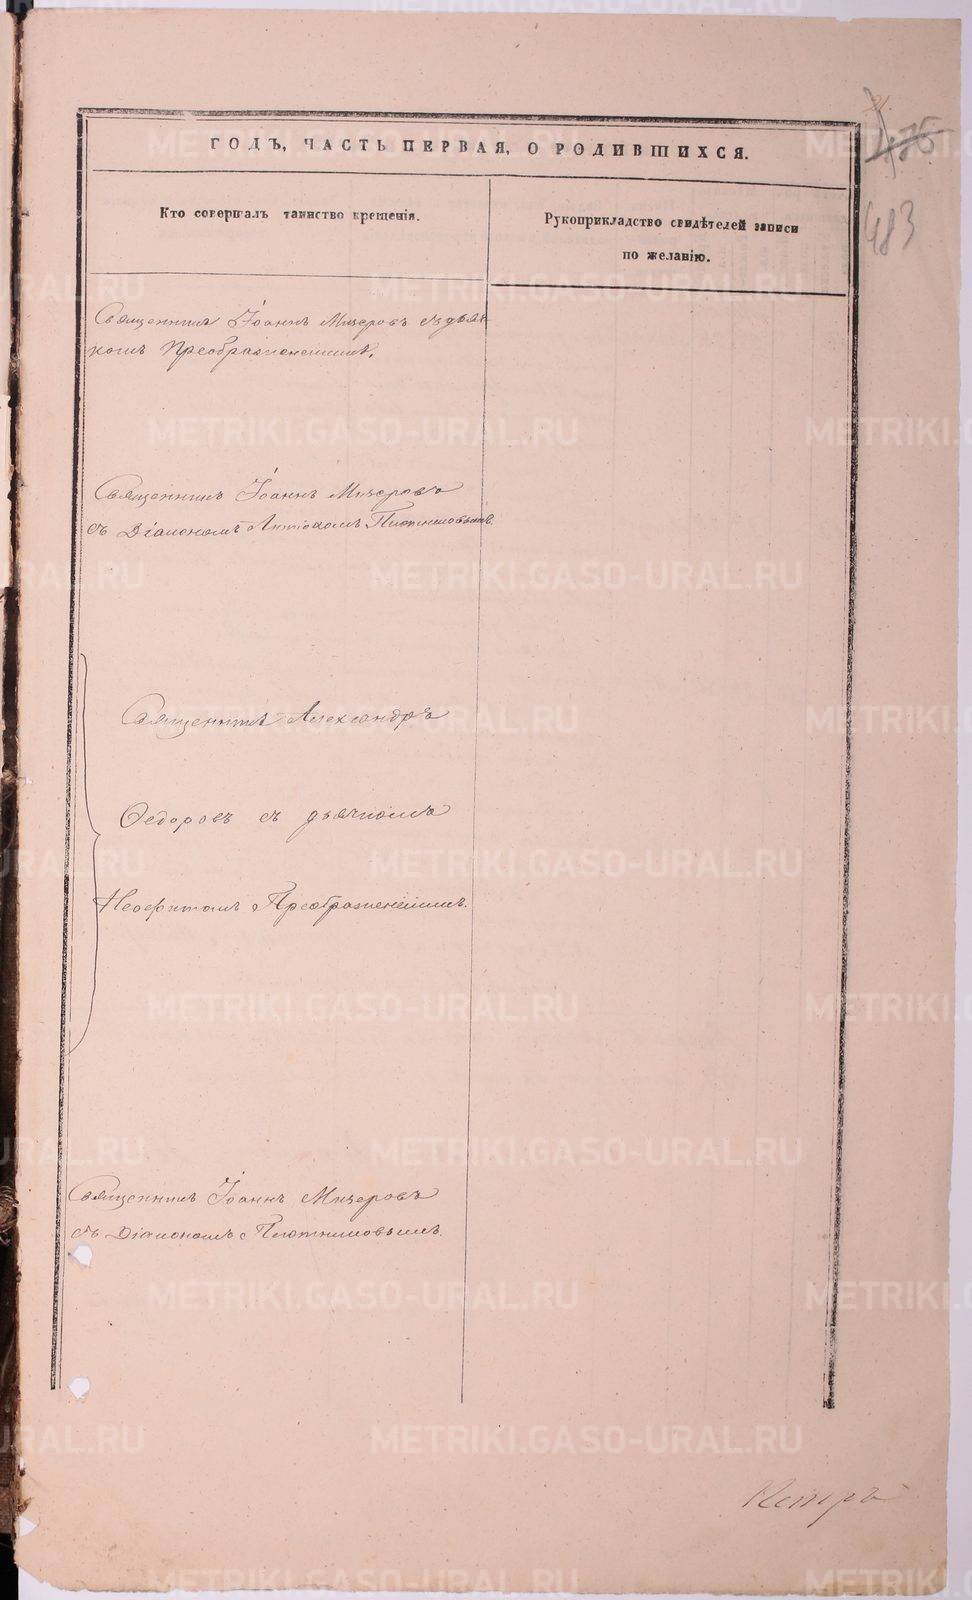 483
ГОДЪ, ЧАСТЬ ПЕРВАЯ, О РОДИВШИХСЯ.
Кто совершалъ таинство крещенія.
Рукоприкладство свидѣтелей записи
по желанію.
Священникъ Іоаннъ Мизеровъ съ дьяч-
комъ Преображенскимъ.
Священникъ Іоаннъ Мизеровъ
съ Діакономъ Антіохомъ Плотниковымъ.
Священникъ Александръ
Ѳедоровъ съ дьячкомъ
Неофитомъ Преображенскимъ.
Священникъ Іоаннъ Мизеровъ
съ Діакономъ Плотниковымъ.
METRIKI.GASO-URAL.RU